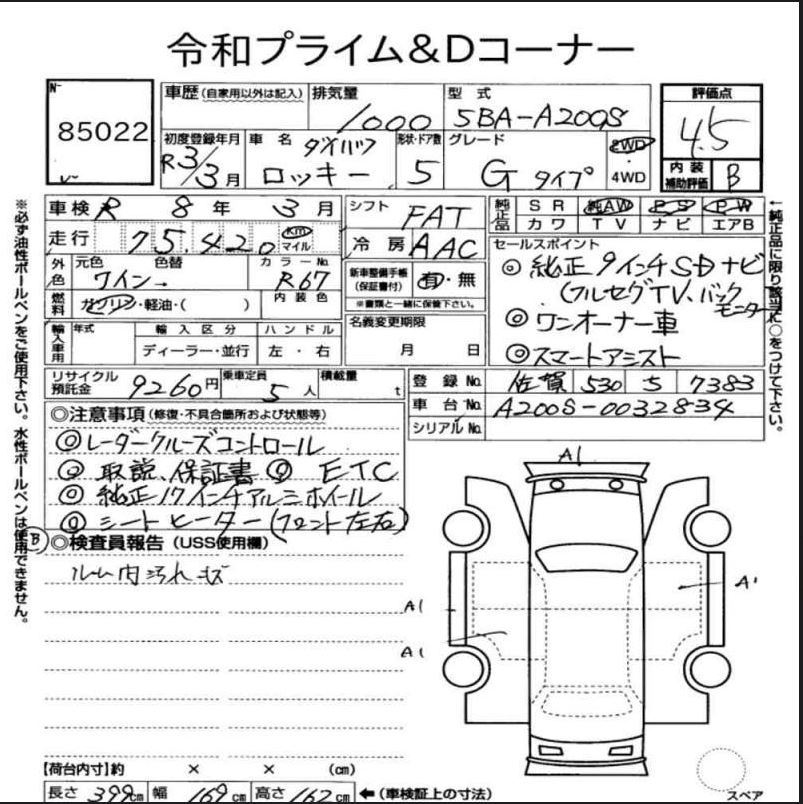 令和プライム&Dコーナー
№ 85022
車歴(自家用以外は記入) 排気量 1000 型式 5BA-A200S 評価点 4.5
初度登録年月 R3/3月 車名 ダイハツ ロッキー 形状・ドア数 5 グレード G タイプ 2WD 4WD
内装補助評価 B
車検 R 8年 3月 シフト FAT
走行 75,420 km マイル 冷房 AAC
純正品 SR 純AW PS PW
カワ TV ナビ エアB
外色 元色 ワイン 色替 → カラーNo. R67
新車整備手帳(保証書付) 有・無
※書類と一緒に保管下さい。
燃料 ガソリン・軽油・( ) 内装色
名義変更期限 月 日
輸入車用 年式 輸入区分 ハンドル
ディーラー・並行 左・右
セールスポイント
◎純正9インチSDナビ
(フルセグTV、バックモニター)
◎ワンオーナー車
◎スマートアシスト
リサイクル預託金 9260円 乗車定員 5人 積載量 t
登録No. 佐賀 530 ち 7383
車台No. A200S-0032834
シリアルNo.
◎注意事項(修復・不具合箇所および状態等)
◎レーダークルーズコントロール
◎取説、保証書 ◎ETC
◎純正17インチアルミホイール
◎シートヒーター(フロント左右)
Ⓑ ◎検査員報告(USS使用欄)
ルーム内汚れキズ
A1
A1
A1
A1
【荷台内寸】約 × × (cm)
長さ 399cm 幅 169cm 高さ 162cm ←(車検証上の寸法)
スペア
※必ず油性ボールペンをご使用下さい。水性ボールペンは使用できません。
←純正品に限り該当に○をつけて下さい。